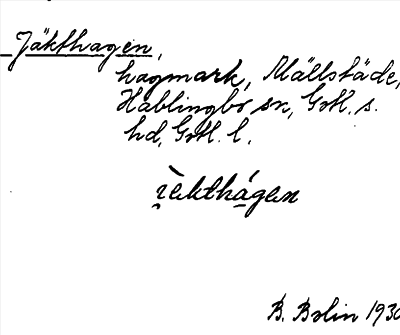 Jäkthagen,
hagmark, Mällstäde,
Hablingbo sn, Gotl. s.
hd, Gotl. l.
i̯èkthágen
B. Bolin 1930